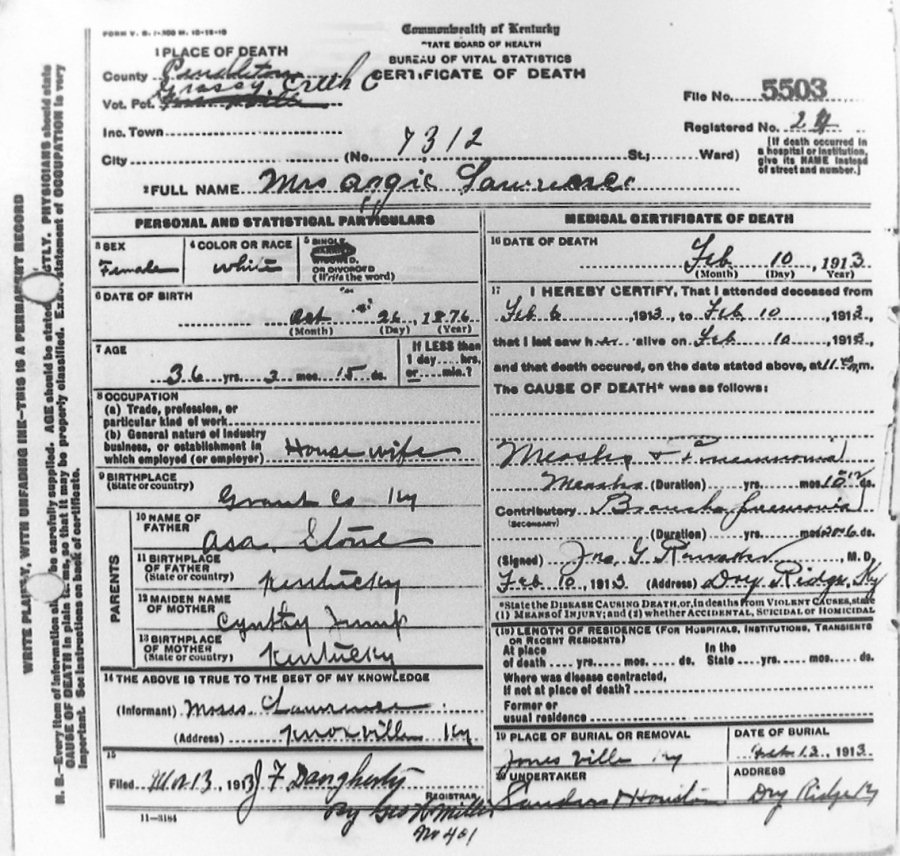 FORM V. S. 1-300 M. 10-18-10
Commonwealth of Kentucky
STATE BOARD OF HEALTH
BUREAU OF VITAL STATISTICS
CERTIFICATE OF DEATH
1 PLACE OF DEATH
County Pendleton
Vot. Pct. Grassy Creek
Inc. Town
City (No. 7312 St.; Ward)
File No. 5503
Registered No. 24
[If death occurred in
a hospital or institution,
give its NAME instead
of street and number.]
2 FULL NAME Mrs Angie Lawrence
PERSONAL AND STATISTICAL PARTICULARS
3 SEX
Female
4 COLOR OR RACE
White
5 SINGLE,
WIDOWED,
OR DIVORCED
(Write the word)
6 DATE OF BIRTH
Oct 26, 1876
(Month) (Day) (Year)
7 AGE
36 yrs. 3 mos. 15 ds.
If LESS than
1 day.....hrs.
or.....min.?
8 OCCUPATION
(a) Trade, profession, or
particular kind of work
(b) General nature of industry
business, or establishment in
which employed (or employer) House wife
9 BIRTHPLACE
(State or country)
Grant Co Ky
PARENTS
10 NAME OF
FATHER
Asa Stone
11 BIRTHPLACE
OF FATHER
(State or country)
Kentucky
12 MAIDEN NAME
OF MOTHER
Cynthy Jump
13 BIRTHPLACE
OF MOTHER
(State or country)
Kentucky
14 THE ABOVE IS TRUE TO THE BEST OF MY KNOWLEDGE
(Informant) Moses Lawrence
(Address) Knoxville Ky
15
Filed Mar 13, 1913 J F Daugherty
REGISTRAR
By Geo W Miller
No 401
11-3184
MEDICAL CERTIFICATE OF DEATH
16 DATE OF DEATH
Feb 10, 1913
(Month) (Day) Year)
17 I HEREBY CERTIFY, That I attended deceased from
Feb 6, 1913, to Feb 10, 1913,
that I last saw her alive on Feb 10, 1913,
and that death occured, on the date stated above, at 11 m.
The CAUSE OF DEATH* was as follows:
Measles & Pneumonia
Measles (Duration) yrs. mos. ds.
Contributory Broncho pneumonia
(SECONDARY)
(Duration) yrs. mos. 6 ds.
(Signed) Jno. G. M.D.
Feb 10, 1913 (Address) Dry Ridge, Ky
*State the DISEASE CAUSING DEATH, or, in deaths from VIOLENT CAUSES, state
(1) MEANS OF INJURY; and (2) whether ACCIDENTAL, SUICIDAL or HOMICIDAL
(18) LENGTH OF RESIDENCE (FOR HOSPITALS, INSTITUTIONS, TRANSIENTS
OR RECENT RESIDENTS)
At place In the
of death yrs. mos. ds. State yrs. mos. ds.
Where was disease contracted,
If not at place of death?
Former or
usual residence
19 PLACE OF BURIAL OR REMOVAL
Jonesville Ky
DATE OF BURIAL
Feb 12, 1913
20 UNDERTAKER
Sanders & Houston
ADDRESS
Dry Ridge Ky
WRITE PLAINLY, WITH UNFADING INK—THIS IS A PERMANENT RECORD
N. B.—Every item of information should be carefully supplied. AGE should be stated EXACTLY. PHYSICIANS should state
CAUSE OF DEATH in plain terms, so that it may be properly classified. Exact statement of OCCUPATION is very
important. See instructions on back of certificate.